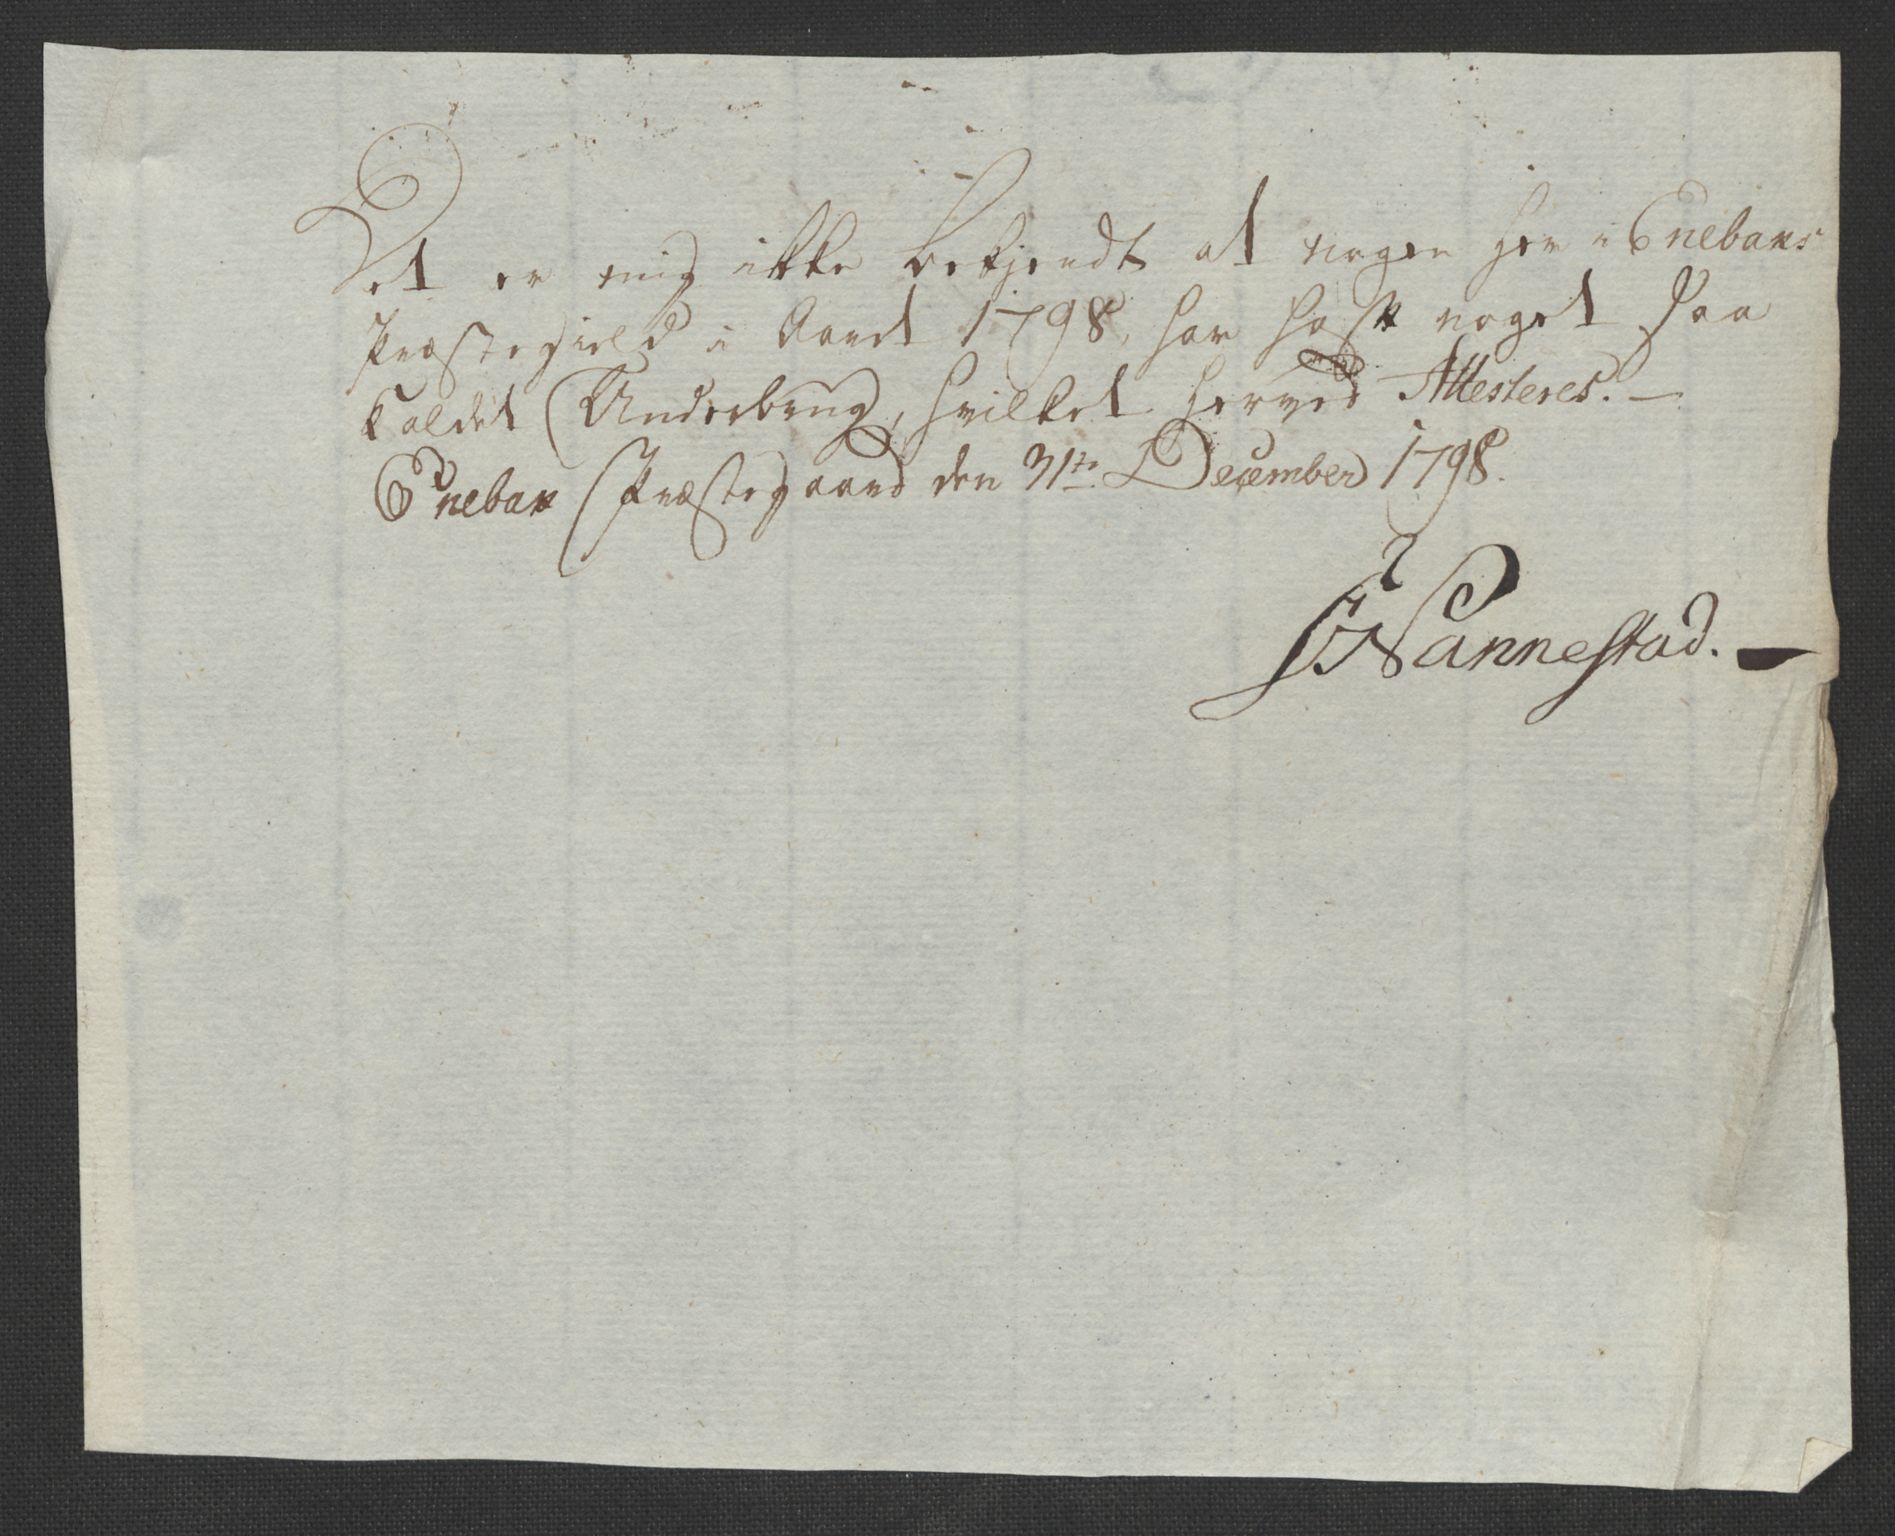 Det er mig ikke bekjendt at nogen her i Enebaks
Præstegield i Aaret 1798, har havt noget saa
kaldet Underbrug, hvilket herved Attesteres. —
Enebak Præstegaard den 31te December 1798.
Nannestad. —